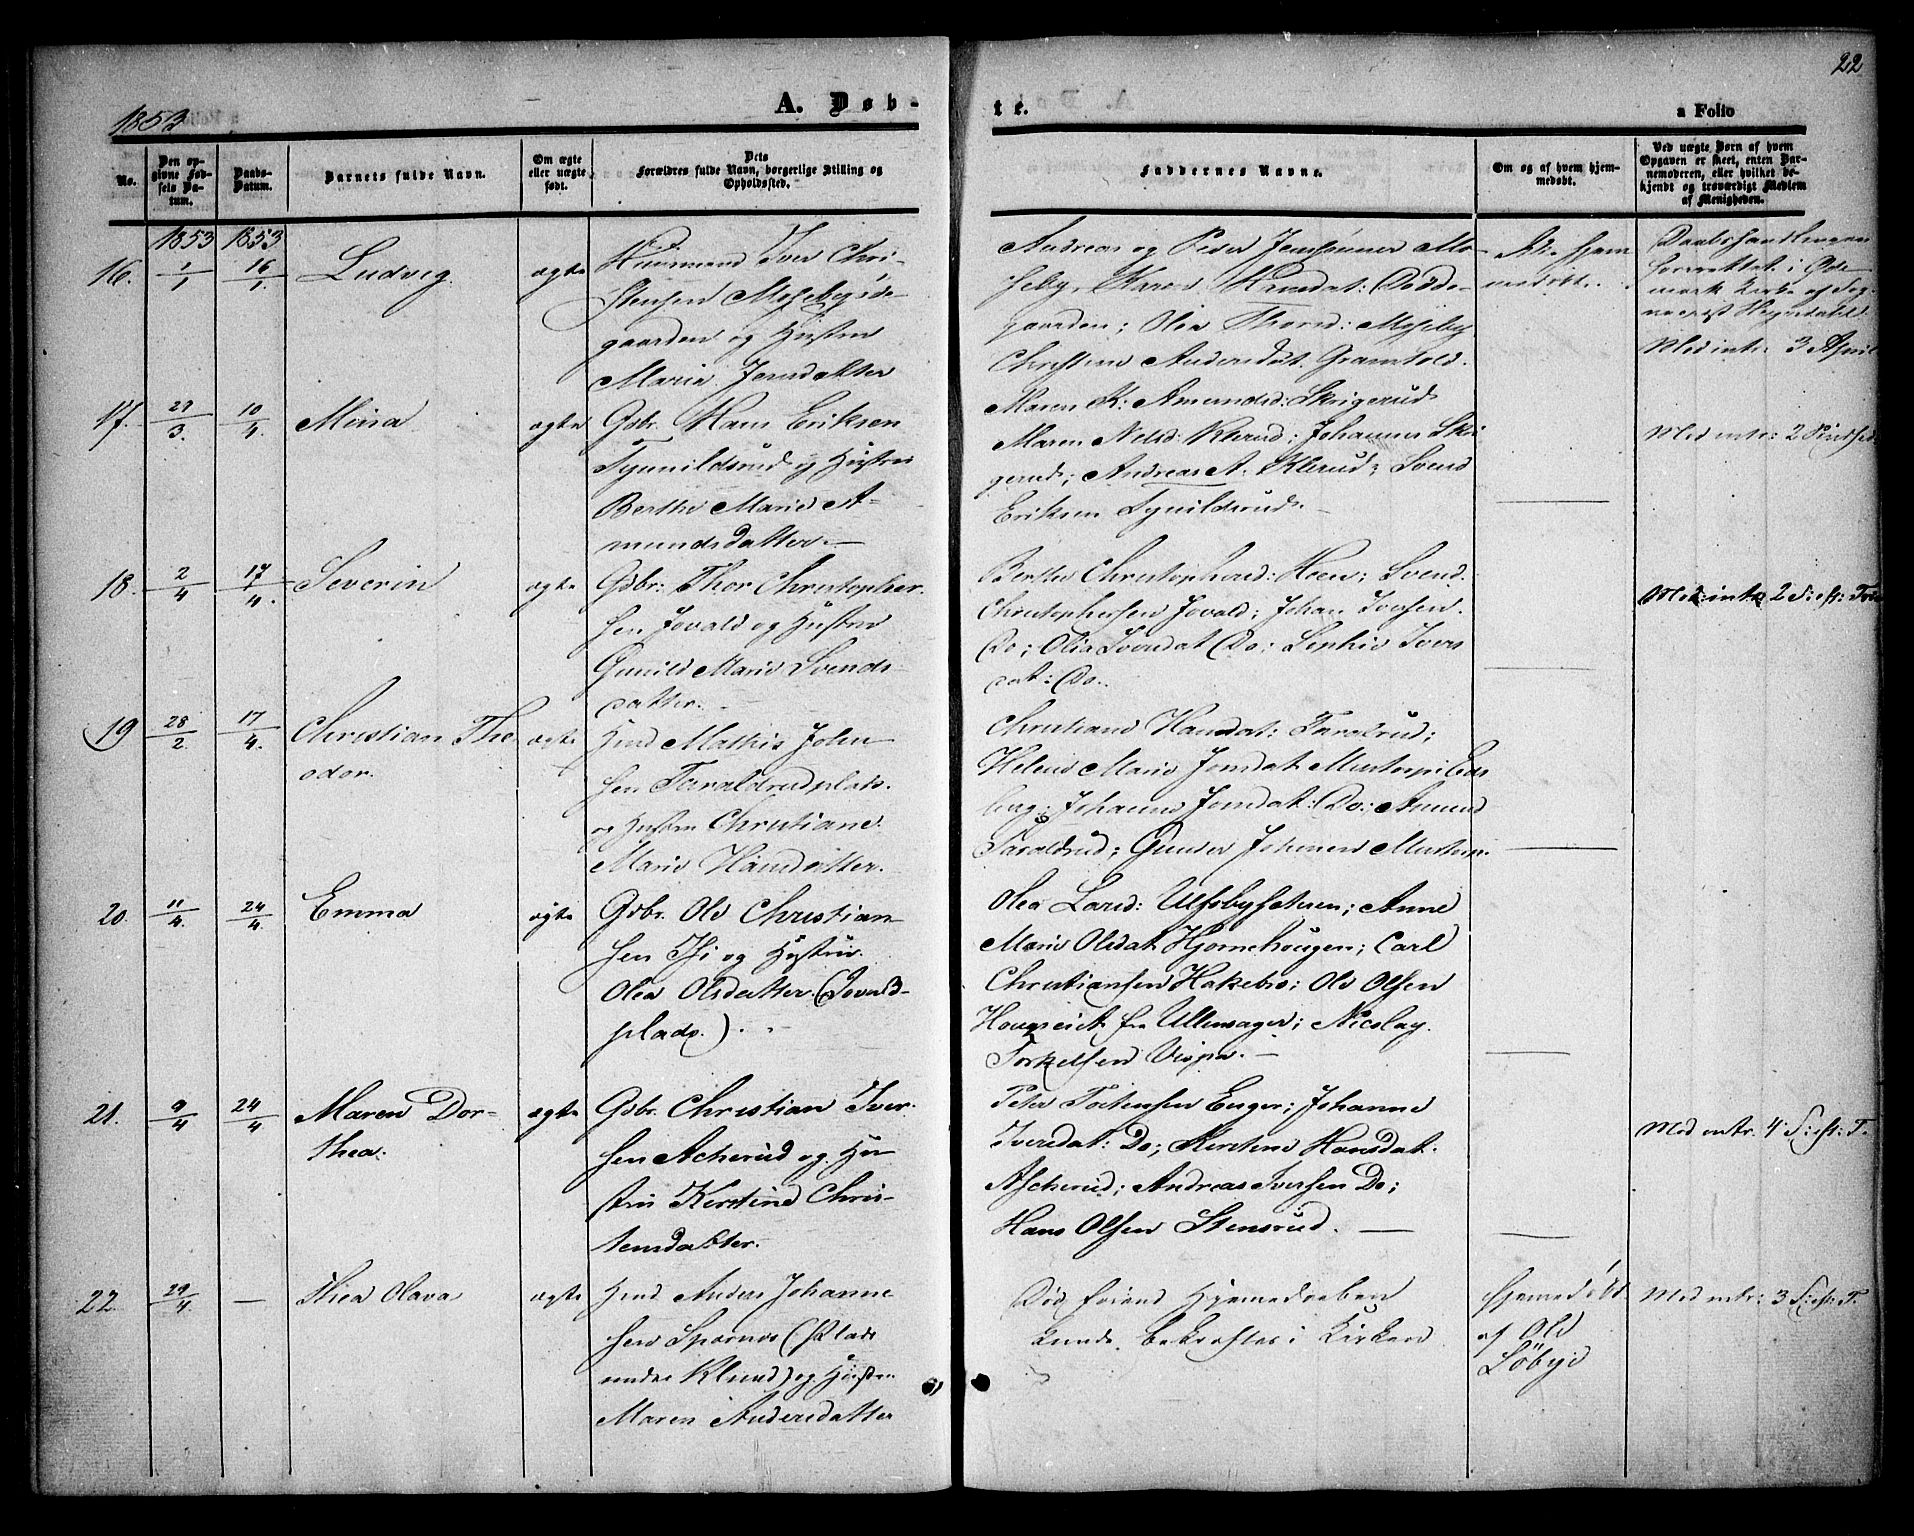 22
1853
A. Døb-
te.
a Folio
No.
Den op-
givne Fød-
sels Da-
tum.
Daabs-
Datum.
Barnets fulde Navn.
Om ægte
eller uægte
født.
Dets
Forældres fulde Navn, borgerlige Stilling og
Opholdssted.
Faddernes Navne.
Om og af hvem hjem-
medøbt.
Ved uægte Børn af hvem
Opgaven er skeet, enten Bar-
nemoderen, eller hvilket be-
kjendt og troværdigt Medlem
af Menigheden.
1853 1853
16. 1/1 16/1 Ludvig ægte
Huusmand Iver Chri-
stensen Mosebyøde-
gaarden og Hustru
Maria Jensdatter
Andreas og Peder Mo-
seby, Karen Ødde-
gaarden; Olea Thorsd: Moseby
Christine Andersdat. Gramtold.
Ikke hjem
medøbt.
Daabshandlingen
forrettet i Øde
mark Kirke af Sog
nepræst
Mod intr: 3 April
17. 29/3. 10/4. Mina ægte
Gdbr. Hans Eriksen
Tyvildsrud og Hustru
Berthe Marie A-
mundsdatter.—
Maren K: Amundsd: Skrigerud
Maren Nelsd: Klerud; Johannes Skri
gerud; Andreas A. Klerud; Svend
Eriksen Tyvildsrud.
Mod intr: 2 Pintsed.
18. 2/4 17/4. Severin ægte
Gdbr: Thor Christopher
sen Jovald og Hustru
Gunild Marie Svends
datter.
Berthe Christophersd: Hoen; Svend
Christophersen Jovald; Johan Iversen
Do; Olia Iversdat Do; Sophie Ivers
dat: Do.
Mod: intr 2 S: ef: Tr
19 28/2. 17/4. Christian The
odor. ægte
Hmd Mathis Johan
sen Taraldrudplads.
og Hustru Christiane
Marie Hansdatter.
Christiane Hansdat: Taralrud;
Helene Marie Jonsdat Mustorp i Eids
berg; Johanne Jonsdat: Do: Amund
Taraldrud; Gunder Johnsen Mustorp.
20. 11/4. 24/4. Emma ægte
Gdbr. Ole Christian
sen Thi og Hustru
Olea Olsdatter (Jovald-
plads.)
Olea Larsd: Ulfsbysætren; Anne
Marie Olsdat Hjornehougen; Carl
Christiansen Hakebro; Ole Olsen
fra Ullensager; Nicolay
Torkelsen
21. 9/4 24/4 Maren Dor-
thea. ægte
Gdbr. Christian Iver
sen Acherud og Hu
stru Kerstine Chris-
tensdatter.
Peter Torstensen Enger; Johanne
Iversdat: Do; Kerstine Hansdat.
Ascherud; Andreas Iversen Do;
Hans Olsen Stensrud. —
Mod intr. 4 S: ef: T.
22. 29/4 — Thea Olava ægte
Hmd Anders Johanne
sen Spornes (Plads
under Klerud) og Hustru
Maren Andersdatter
Død førend Hjemmedaaben
kunde bekræftes i Kirken
Hjemmedøbt
af Ole
Löbye
Mod intr: 3 S: ef: T.